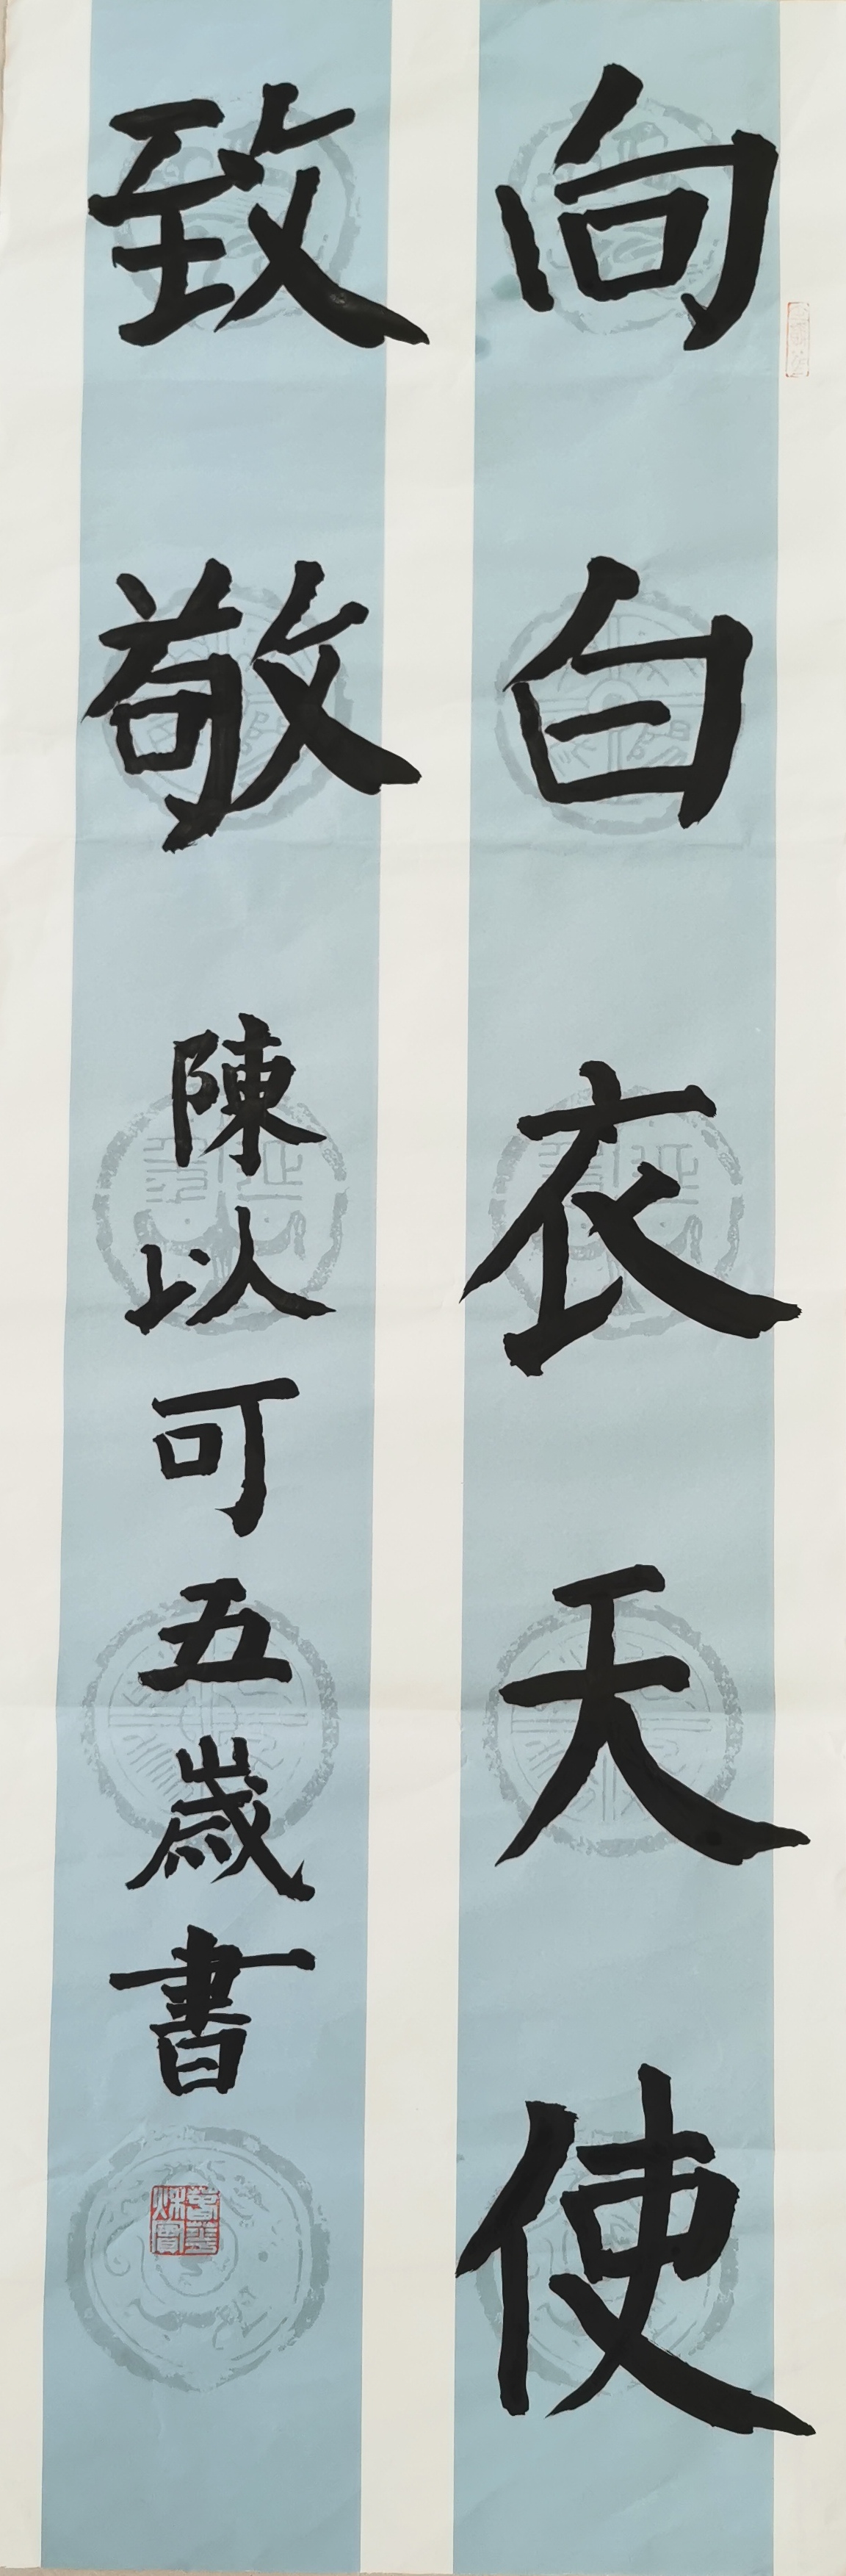 向白衣天使
致敬 陳以可五歲書